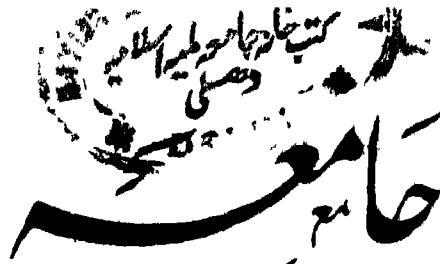 کتب خانہ جامعہ ملیہ اسلامیہ
دھلی
جامعہ